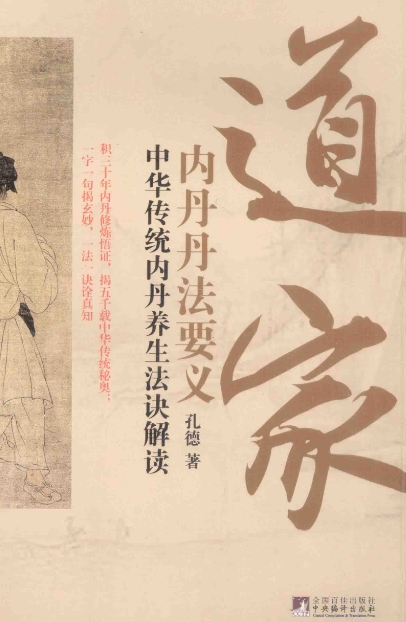 道家
内丹丹法要义
中华传统内丹养生法诀解读
孔德 著
积三十年内丹修炼悟证，揭五千载中华传统秘奥；
一字一句揭玄妙，一法一诀诠真知
全国百佳出版社
中央编译出版社
Central Compilation & Translation Press